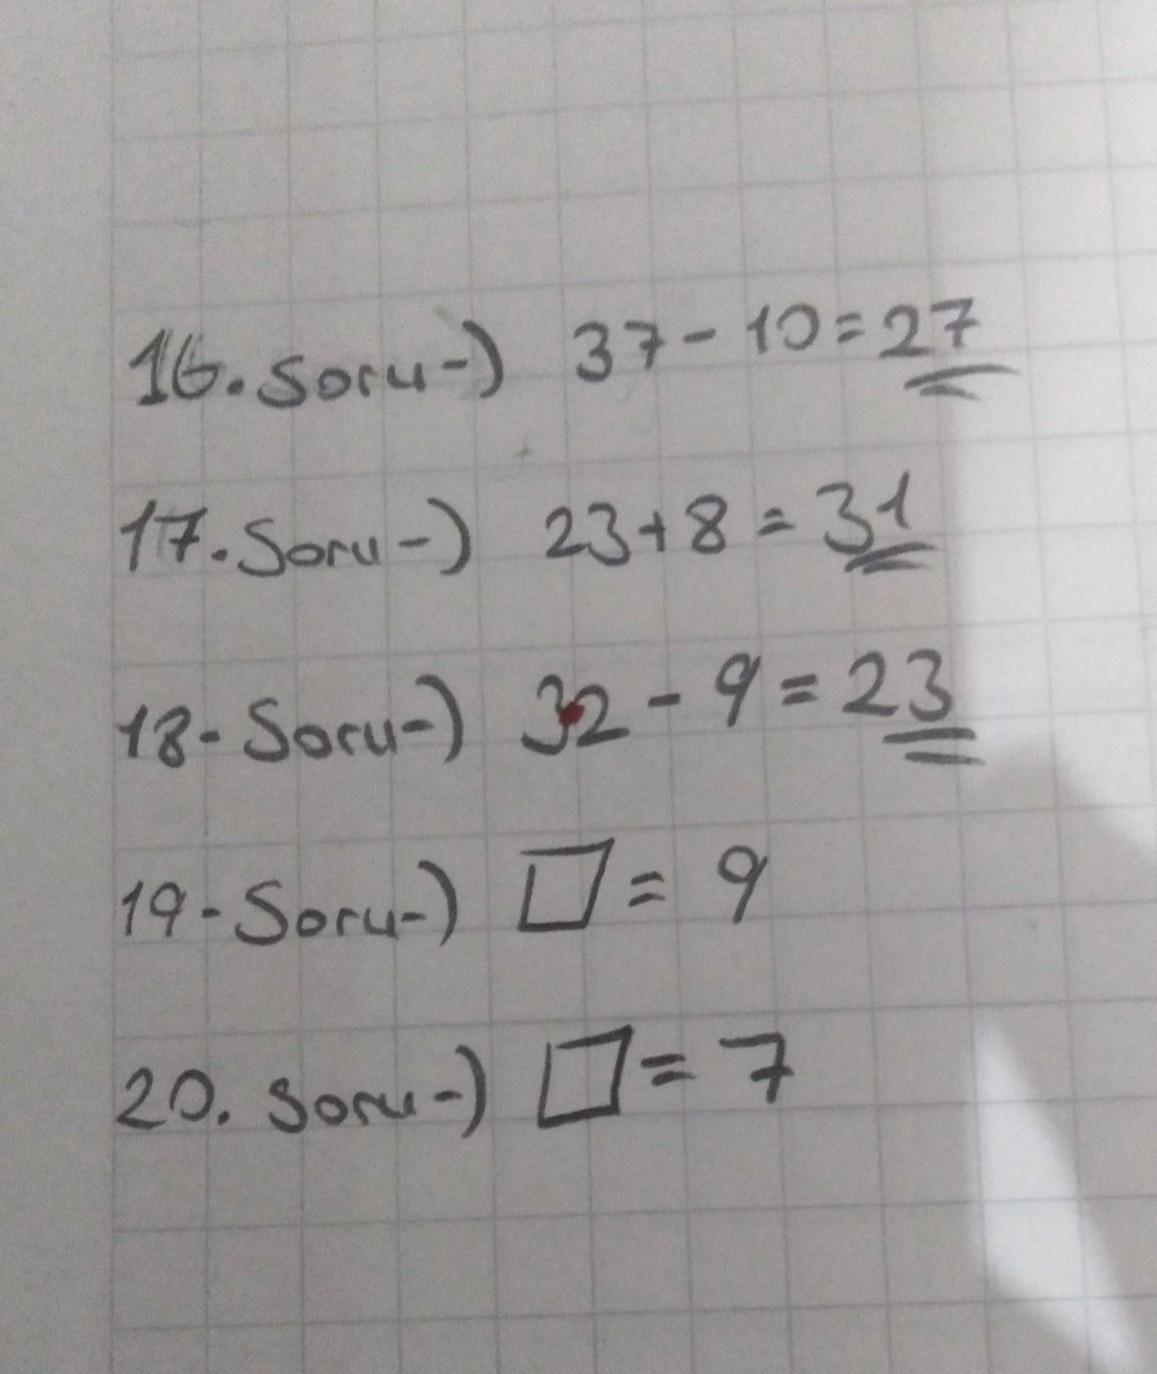 16. Soru-) 37 - 10 = 27
17. Soru-) 23 + 8 = 31
18- Soru-) 32 - 9 = 23
19- Soru-) □ = 9
20. Soru-) □ = 7